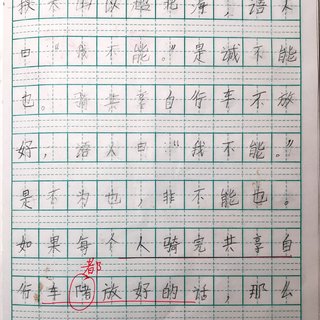 北海，语人
曰“我不能。”是诚不能
也。骑共享自行车不放
好，语人曰“我不能。”
是不为也，非不能也。
如果每个人骑完共享自
都
行车陼放好的话，那么